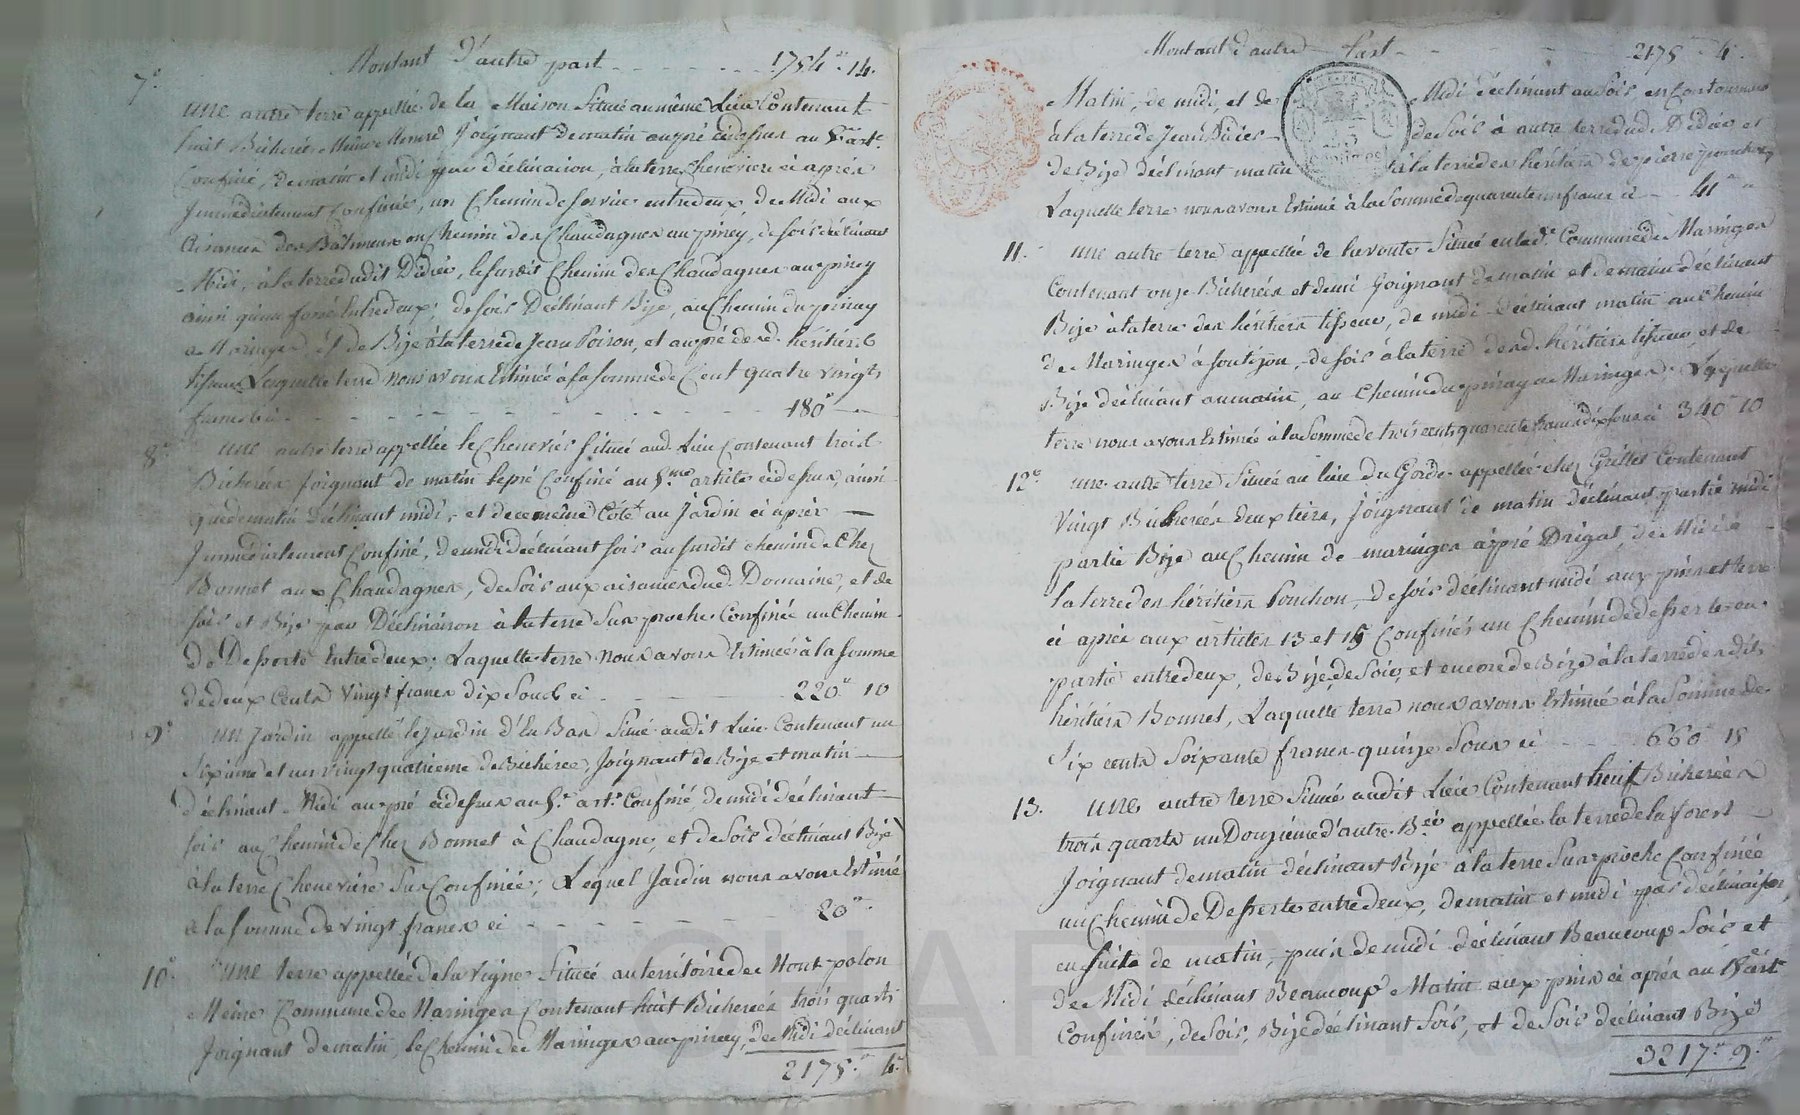 Montant d'autre part - - - - - - 1754" 14.
7° une autre terre appellée de la Maison Située au même Lieu Contenant
huit Bicherées Même Mesure Joignant de matin au pré cidessus au 5me art.
Confiné, de matin et midi par déclinaison, à la terre Cheneviere ci après
Immédiatement Confinée, un Chemin de service entredeux de Midi aux
Aisances des Bâtimens ou Chemin des Chaudagnes au piney, de soir déclinant
Midi, à la terre dudit Didier, le susdit Chemin des Chaudagnes au piney
ainsi qu'un fossé Entredeux; de soir Déclinant Bize, au Chemin du pinay
a Maringes, et de Bize à la terre de Jean Poiron, et au pré desd. héritiers
tisseur Laquelle terre nous avons Estimée à la somme de Cent quatre vingts
francs ci - - - - - - - - - - - - 180" -
8° une autre terre appellée le Chenevier Située aud. Lieu Contenant trois
Bicherées Joignant de matin le pré Confiné au 5.me article cidessus, ainsi
que de matin Déclinant midi, et de ce même Côté au Jardin ci après —
Immédiatement Confiné, de midi déclinant soir au susdit chemin de Chez
Bonnet aux Chaudagnes, de Soir aux aisances dud. Domaine, et de
soir et Bize par Déclinaison à la terre Sus proche Confinée un Chemin
de Desserte Entredeux; Laquelle terre nous avons Estimée à la somme
de deux Cents Vingt francs dix Sous ci - - - - 220" 10
9° un Jardin appellé le Jardin d'En Bas Situé audit Lieu Contenant un
Sixieme et un vingt quatrieme de Bicherée, Joignant de Bize et matin —
déclinant Midi au pré cidessus au 5.e art. Confiné, de midi déclinant
soir au Chemin de Chez Bonnet à Chaudagne, et de Soir déclinant Bize
à la terre Cheneviere Sus Confinée; Lequel Jardin nous avons Estimé
a la somme de vingt francs ci - - - - - 20"
10° une terre appellée de la Vigne Située au territoire de Mont-polon
Même Commune de Maringes Contenant huit Bicherées trois quarts
Joignant de matin, le Chemin de Maringes au piney, de Midi déclinant
2175" 4"
Montant d'autre Part - - - 2175" 4"
Matin, de midi, et de Midi déclinant au Soir en Contournant
à la terre de Jean Didier de Soir à autre terre dud. Didier et
de Bize déclinant matin à la terre des héritiers de pierre
Laquelle terre nous avons Estimée à la Somme de quarante un francs ci - 41" "
11. une autre terre appellée de la voute Située en lad. Commune de Maringes
Contenant onze Bicherées et demi Joignant de matin et de matin déclinant
Bize à la terre des héritiers tisseur, de midi Déclinant matin au Chemin
de Maringes à Soutizon, de soir à la terre desd. héritiers tisseur, et de
Bize déclinant au matin, au Chemin du pinay a Maringes. Laquelle
terre nous avons Estimée à la Somme de trois cents quarante francs dix sous ci 340" 10
12° une autre terre Située au lieu du Gorde appellée chez Grillet Contenant
Vingt Bicherées deux tiers, Joignant de matin Déclinant partie midi
partie Bize au Chemin de maringes à pré Drigas, de Midi à
la terre des héritiers Ponchon, de soir déclinant midi, aux pins et terre
ci après aux articles 13 et 15 Confinés un Chemin de desserte en
partie entredeux, de Bize, de Soir, et encore de Bize à la terre desdits
héritiers Bonnet, Laquelle terre nous avons Estimée à la Somme de
Six cents Soixante francs quinze Sous ci - - - 660" 15
13. une autre terre Située audit Lieu Contenant huit Bicherées
trois quarts un Douzieme d'autre B.ée appellée la terre de la forest
Joignant de matin déclinant Bize à la terre Sus proche Confinée
un Chemin de Desserte entredeux, de matin et midi par déclinaison,
en suite de matin, puis de midi déclinant Beaucoup Soir et
de Midi déclinant Beaucoup Matin aux pins ci après au 15e art.
Confinés, de soir, Bize déclinant Soir, et de Soir déclinant Bize
3217" 9"